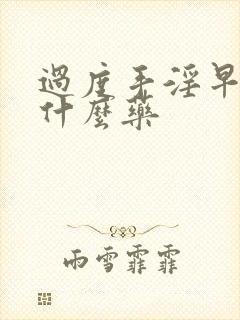 過度手淫早
什麼藥
雨雪霏霏